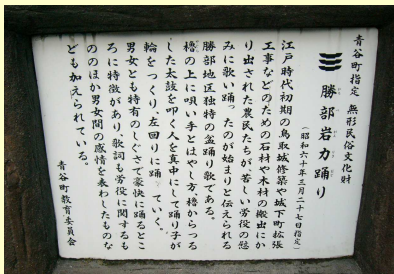 青谷町指定 無形民俗文化財
勝部岩力踊り
(昭和六十年三月二十七日指定)
江戸時代初期の鳥取城修築や城下町拡張
工事などのための石材や木材の搬出にか
り出された農民たちが苦しい労役の慰
みに歌い踊ったのが始まりと伝えられる
勝部地区独特の盆踊り歌である。
櫓の上に唄い手とはやし方、櫓からつる
した太鼓を叩く人を真中にして踊り子が
輪をつくり、左回りに踊っていく。
男女とも特有のしぐさで豪快に踊るとこ
ろに特徴があり、歌詞も労役に関するも
ののほか男女間の感情を表わしたものな
ども加えられている。
青谷町教育委員会